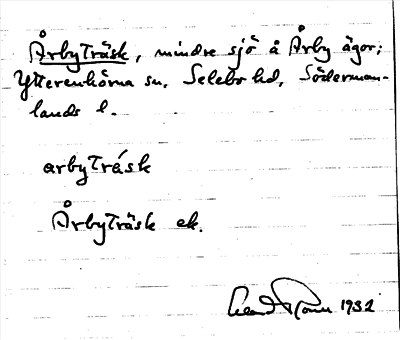 Årbyträsk, mindre sjö å Årby ägor;
Ytterenhörna sn, Selebo hd, Söderman-
lands l.
arbyträsk
Årbyträsk ek.
1932